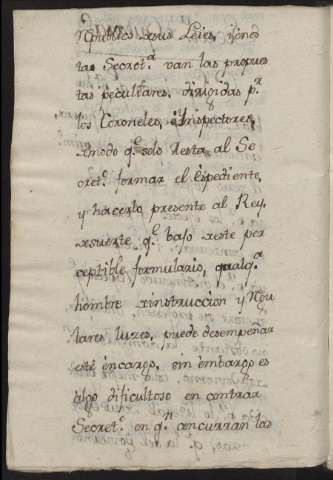 Secret.ª van las propues
tas peculiares, dirigidas p.r
los Coroneles, é Ynspectores,
q.e solo resta al Se
cret.o formar el Espediente,
y hacerlo presente al Rey,
q.e bajo este per
ceptible formulario, qualq.a
hombre instruccion y Regu
lares luzes, puede desempeñar
este encargo, em embargo es
algo dificultoso en contrar
Secret.o en q.n concurran las